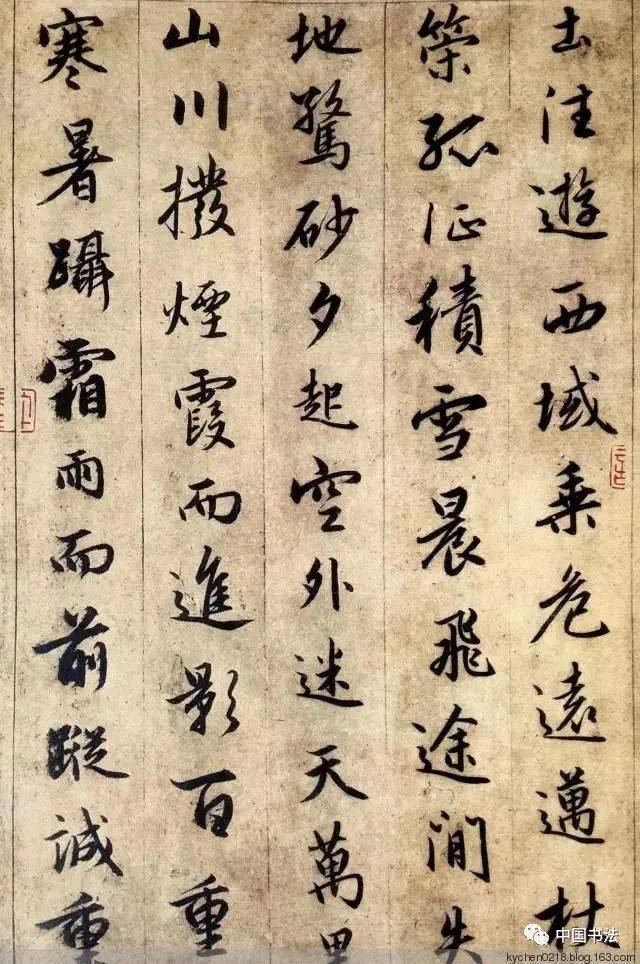 土往遊西域乘危遠邁杖
策孤征積雪晨飛途閒失
地驚砂夕起空外迷天萬里
山川撥煙霞而進影百重
寒暑躡霜雨而前蹤誠重
中国书法
kychen0218.blog.163.com